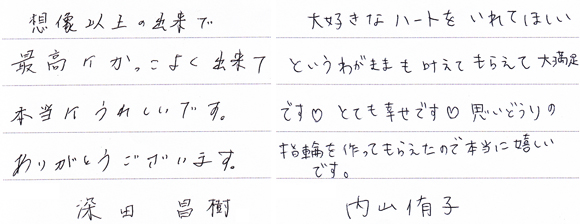 想像以上の出来で
最高にかっこよく出来て
本当にうれしいです。
ありがとうございます。
深田 昌樹
大好きなハートをいれてほしい
というわがままも叶えてもらえて大満足
です♡とても幸せです♡思いどうりの
指輪を作ってもらえたので本当に嬉しい
です。
内山侑子